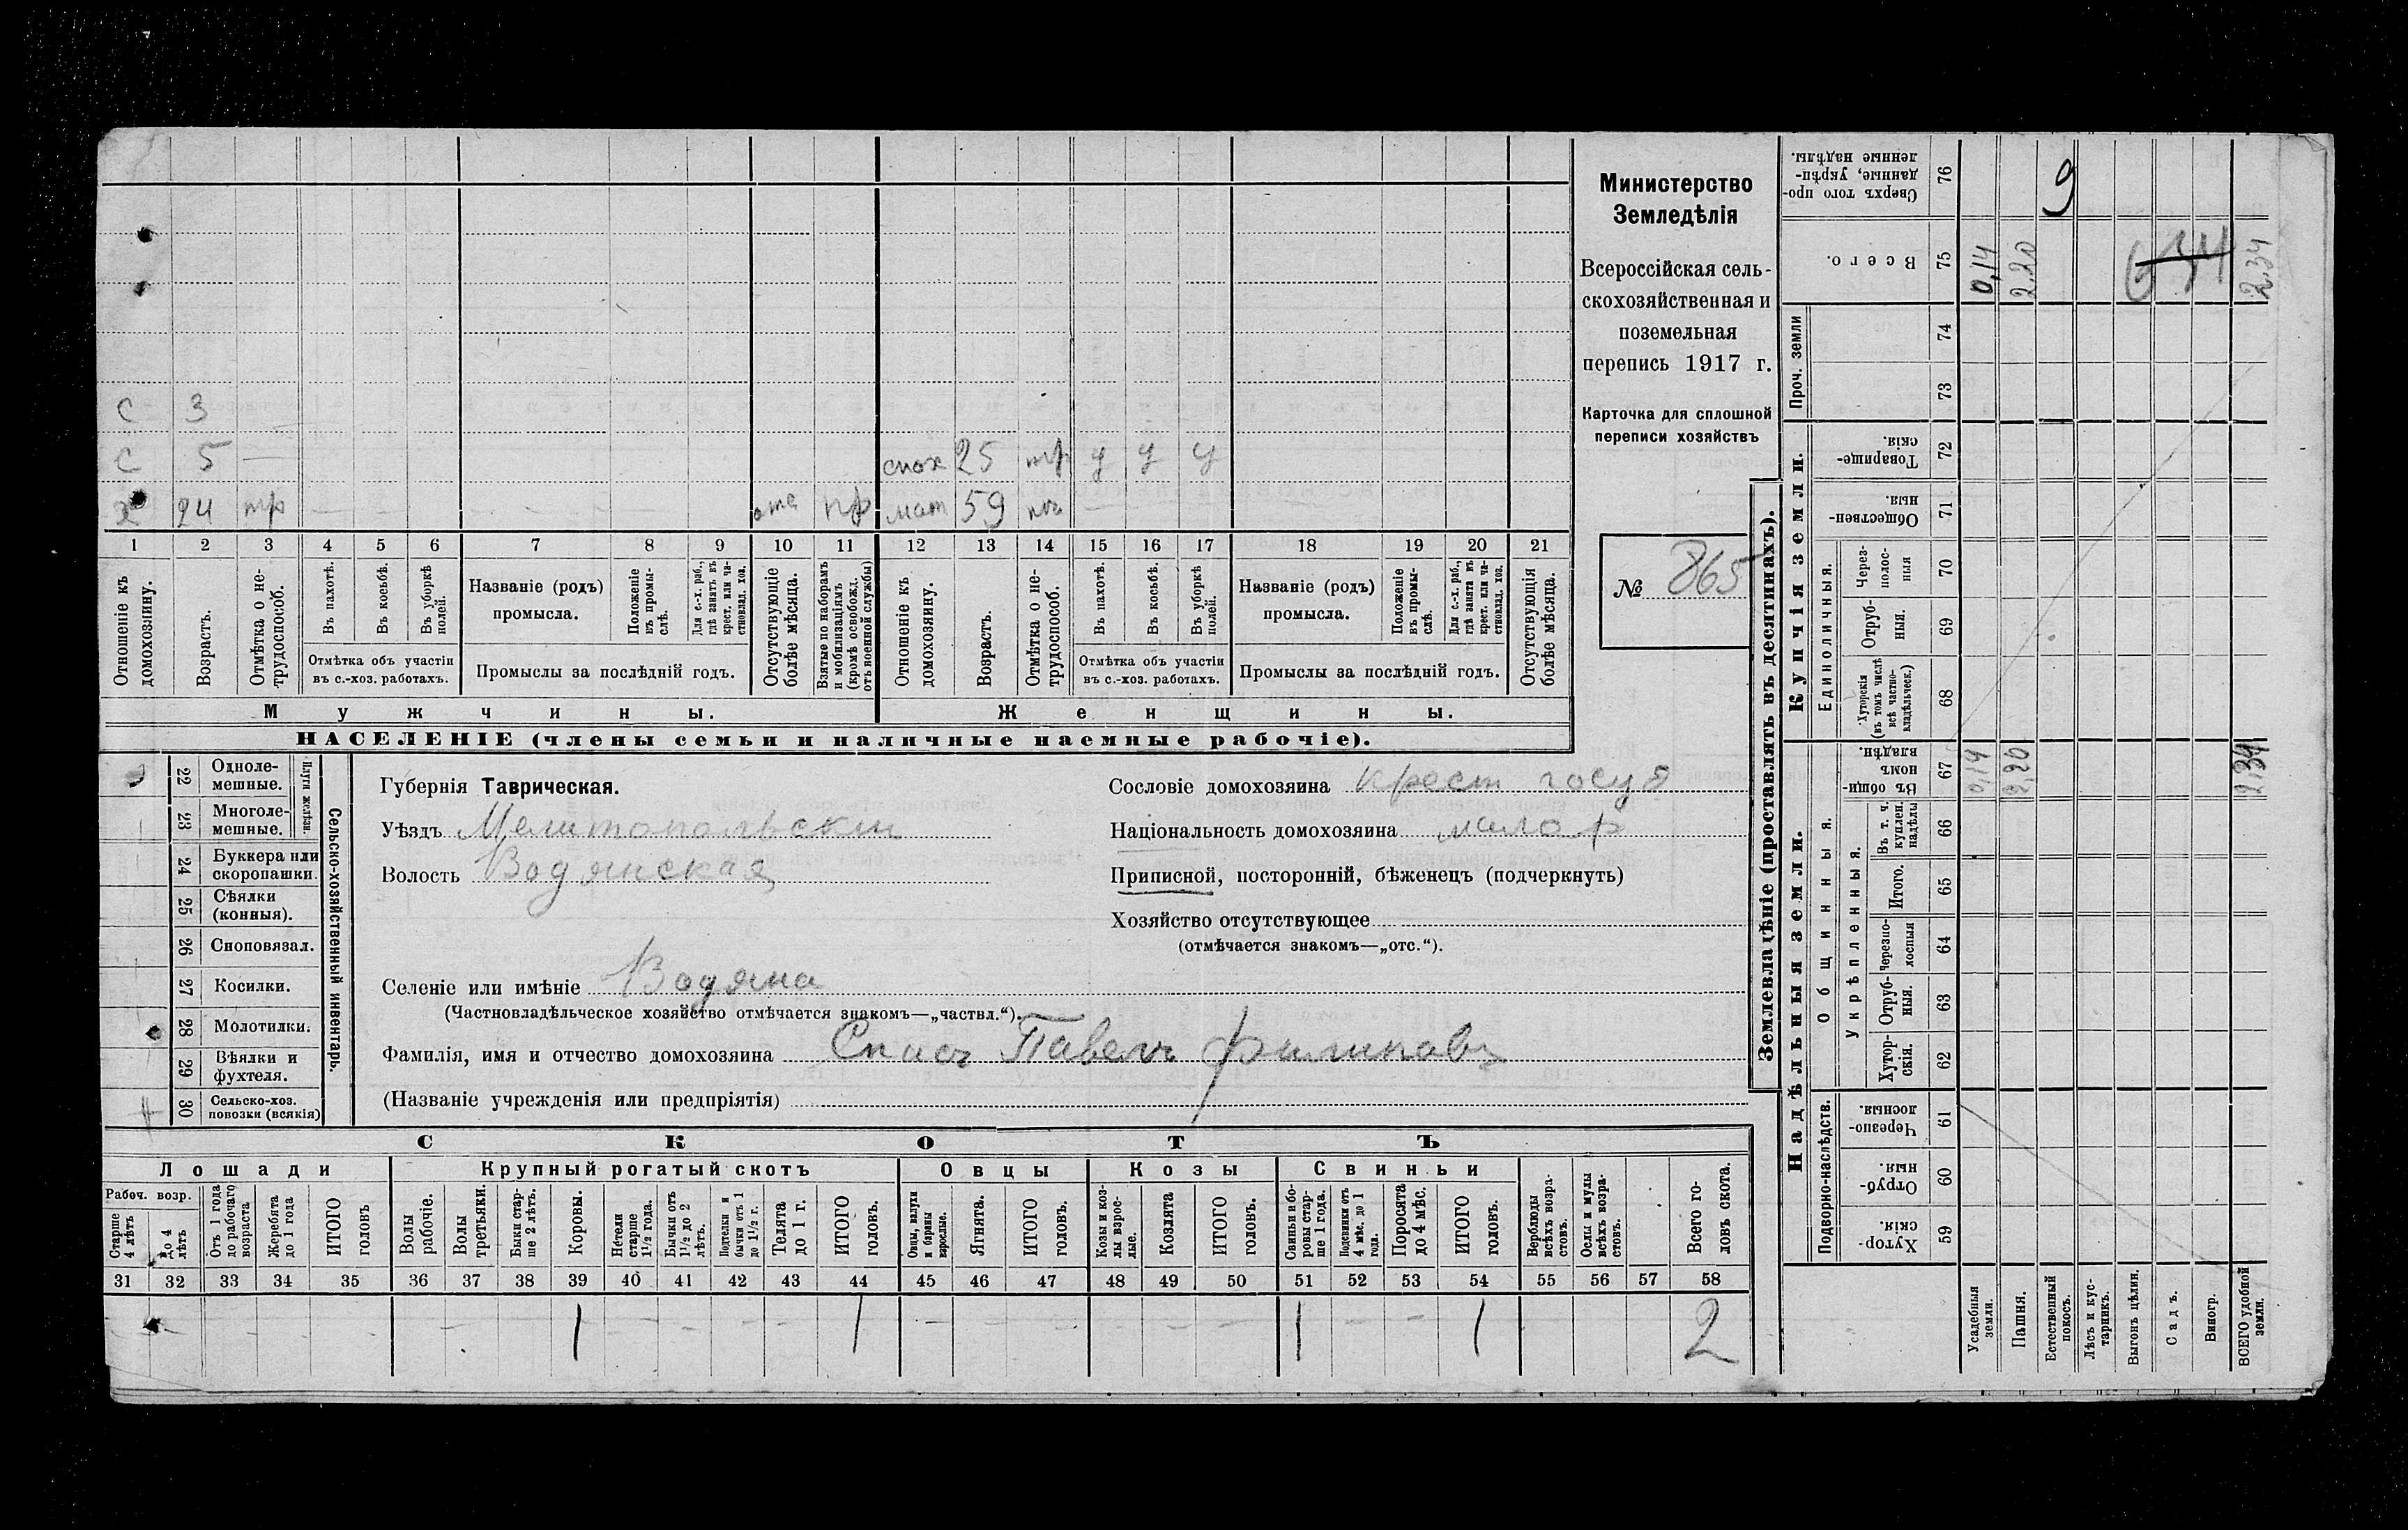 Министерство
Земледѣлія
Всероссійская сель-
скохозяйственная и
поземельная
перепись 1917 г.
Карточка для сплошной
переписи хозяйствъ
№ 865
С 3
С 5 —
х 24 тр отс пр
спох 25 тр у у у
мат 59 —
1 2 3 4 5 6 7 8 9 10 11 12 13 14 15 16 17 18 19 20 21
Отношеніе къ домохозяину.
Возрастъ.
Отмѣтка о не-трудоспособ.
Въ пахотѣ.
Въ косьбѣ.
Въ уборкѣ полей.
Отмѣтка объ участіи
въ с.-хоз. работахъ.
Названіе (родъ)
промысла.
Положеніе въ промы-слѣ.
Для с.-х. раб., гдѣ занятъ въ крест. или ча-стновлад. хоз.
Промыслы за послѣдній годъ.
Отсутствующіе болѣе мѣсяца.
Взятые по наборамъ и мобилизаціямъ (кромѣ освобожд. отъ военной службы)
Отношеніе къ домохозяину.
Возрастъ.
Отмѣтка о не-трудоспособ.
Въ пахотѣ.
Въ косьбѣ.
Въ уборкѣ полей.
Отмѣтка объ участіи
въ с.-хоз. работахъ.
Названіе (родъ)
промысла.
Положеніе въ промы-слѣ.
Для с.-х. раб., гдѣ занята въ крест. или ча-стновлад. хоз.
Промыслы за послѣдній годъ.
Отсутствующія болѣе мѣсяца.
Мужчины.
Женщины.
НАСЕЛЕНІЕ (члены семьи и наличные наемные рабочіе).
22 Одноле-мешные.
23 Многоле-мешные.
Плуги желѣзн.
24 Буккера или скоропашки.
25 Сѣялки (конныя).
26 Сноповязал.
27 Косилки.
28 Молотилки.
29 Вѣялки и фухтеля.
30 Сельско-хоз. повозки (всякія)
Сельско-хозяйственный инвентарь.
Губернія Таврическая.
Уѣздъ Мелитопольскій
Волость Водянская
Сословіе домохозяина крест госуд
Національность домохозяина малор
Приписной, посторонній, бѣженецъ (подчеркнуть)
Хозяйство отсутствующее
(отмѣчается знакомъ—„отс.“).
Селеніе или имѣніе Водяна
(Частновладѣльческое хозяйство отмѣчается знакомъ—„частвл.“).
Фамилія, имя и отчество домохозяина Спись Павелъ Филиповъ
(Названіе учрежденія или предпріятія)
СКОТЪ
Лошади
Крупный рогатый скотъ
Овцы
Козы
Свиньи
Рабоч. возр.
Старше 4 лѣтъ
до 4 лѣтъ
Отъ 1 года до рабочаго возраста
Жеребята до 1 года
ИТОГО головъ
Волы рабочіе.
Волы третьяки.
Быки стар-ше 2 лѣтъ.
Коровы.
Нетели старше 1½ года.
Бычки отъ 1½ до 2 лѣтъ.
Подтелки и бычки отъ 1 до 1½ г.
Телята до 1 г.
ИТОГО головъ.
Овцы, валухи и бараны взрослые.
Ягнята.
ИТОГО головъ.
Козы и коз-лы взрос-лые.
Козлята
ИТОГО головъ.
Свиньи и бо-ровы стар-ше 1 года.
Подсвинки отъ 4 мѣс. до 1 года.
Поросята до 4 мѣс.
ИТОГО головъ.
Верблюды всѣхъ возра-стовъ.
Ослы и мулы всѣхъ возра-стовъ.
Всего го-ловъ скота.
31 32 33 34 35 36 37 38 39 40 41 42 43 44 45 46 47 48 49 50 51 52 53 54 55 56 57 58
1 1 1 1 2
Землевладѣніе (проставлять въ десятинахъ).
Надѣльныя земли.
Купчія земли.
Проч. земли
Подворно-наслѣдств.
Общинныя.
Укрѣпленныя.
Единоличныя.
Сверхъ того про-данные, укрѣп-ленные надѣлы. 76 9
Всего. 75 0,14 2,20 2,34
74
73
Товарище-скія. 72
Обществен-ныя. 71
Через-полос-ныя 70
Отруб-ныя. 69
Хуторскія (въ томъ числѣ всѣ частно-владѣльческ.) 68
Въ общин-номъ владѣн. 67 0,14 2,20 2,34
Въ т. ч. куплен. надѣлы 66
Итого. 65
Черезпо-лосныя 64
Отруб-ныя. 63
Хутор-скія. 62
Черезпо-лосныя 61
Отруб-ныя. 60
Хутор-скія. 59
Усадебныя земли.
Пашня.
Естественный покосъ.
Лѣсъ и кус-тарникъ.
Выгонъ цѣлин.
Садъ.
Виногр.
ВСЕГО удобной земли.